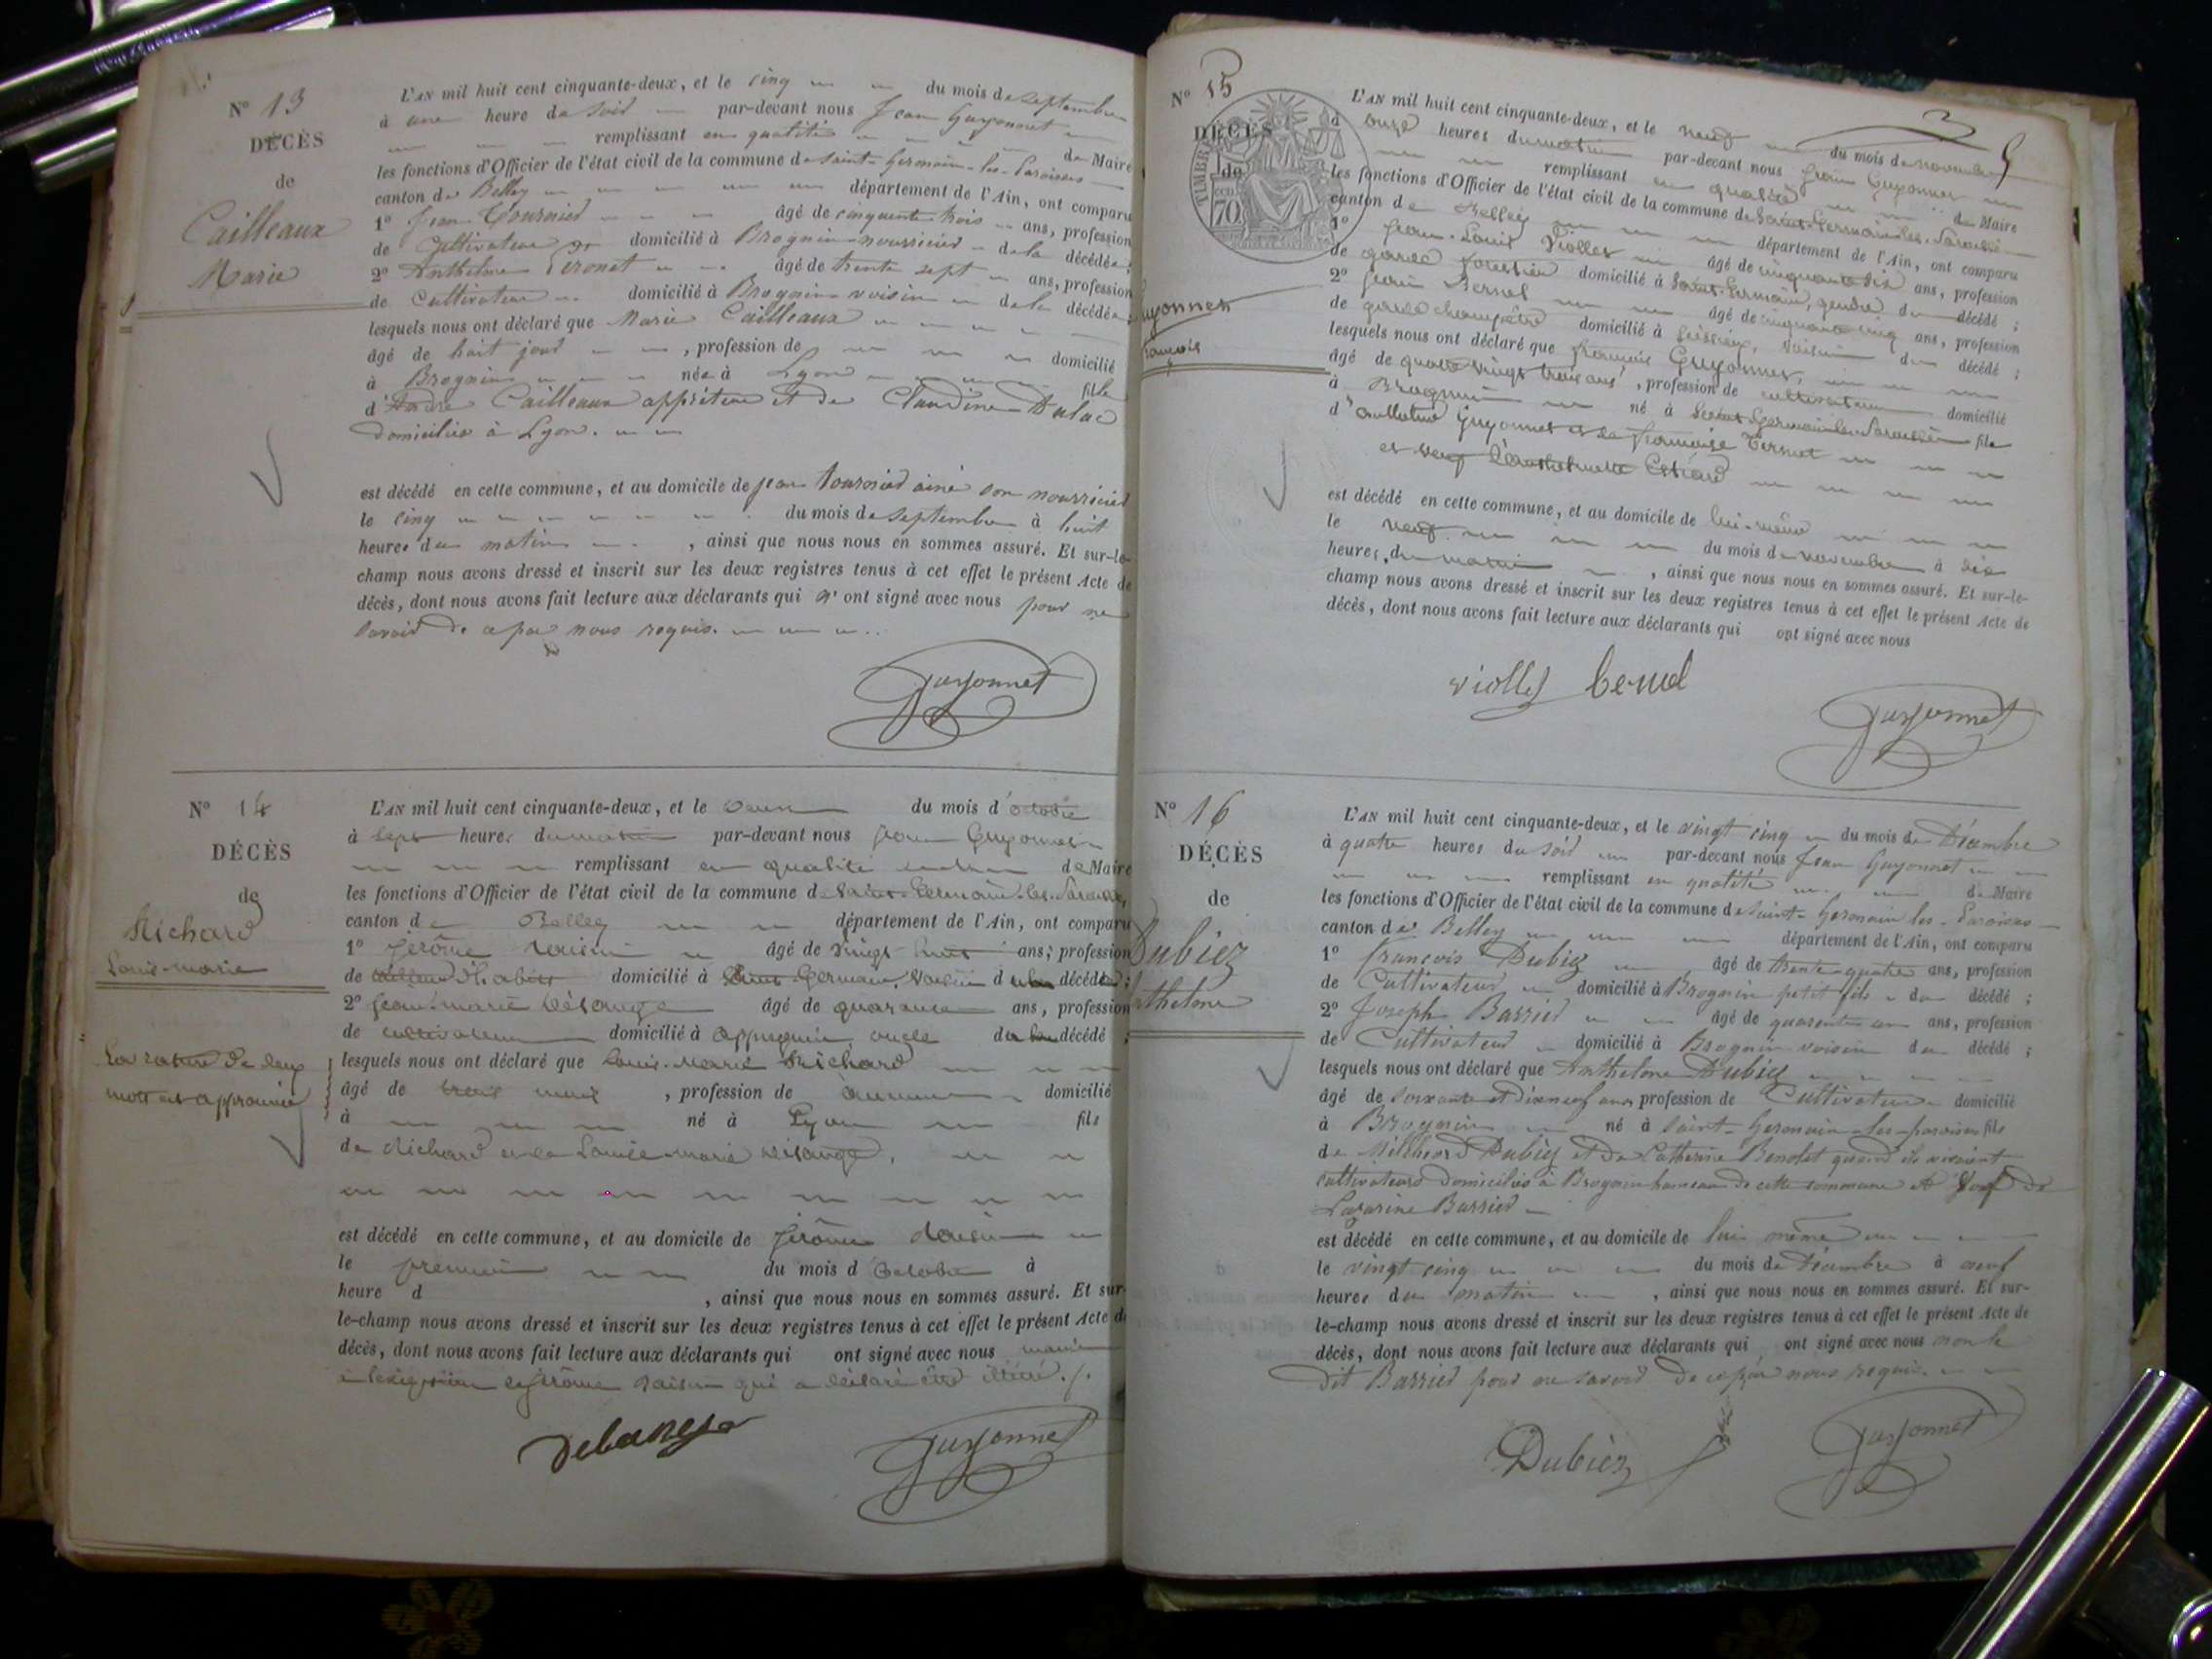 N° 13
DÉCÈS
de
Cailleaux
Marie
L'AN mil huit cent cinquante-deux, et le cinq du mois de septembre
à une heure du soir par-devant nous Jean Guyonnet
remplissant en qualité de Maire
les fonctions d'Officier de l'état civil de la commune de Saint-Germain-les-Paroisses
canton de Belley département de l'Ain, ont comparu
1° Jean Tournier âgé de cinquante-trois ans, profession
de Cultivateur domicilié à Brognin nourricier de la décédée ;
2° Anthelme Peronet âgé de trente sept ans, profession
de Cultivateur domicilié à Brognin voisin de la décédée ;
lesquels nous ont déclaré que Marie Cailleaux
âgé de huit jour , profession de domicilié
à Brognin née à Lyon fille
d'Andre Cailleaux appréteur et de Claudine Dulac
domiciliés à Lyon.
est décédé en cette commune, et au domicile de jean tournier ainé son nourricier
le cinq du mois de septembre à huit
heures du matin , ainsi que nous nous en sommes assuré. Et sur-le-
champ nous avons dressé et inscrit sur les deux registres tenus à cet effet le présent Acte de
décès, dont nous avons fait lecture aux déclarants qui n'ont signé avec nous pour ne
savoir de ce par nous requis.
Guyonnet
N° 14
DÉCÈS
de
Richard
Louis-marie
La rature de deux
mots est approuvée
L'AN mil huit cent cinquante-deux, et le deux du mois d'octobre
à sept heures du matin par-devant nous Jean Guyonnet
remplissant en qualité de Maire
les fonctions d'Officier de l'état civil de la commune de Saint-Germain-les-Paroisses,
canton de Belley département de l'Ain, ont comparu
1° Jérôme âgé de vingt huit ans, profession
de domicilié à Saint Germain, voisin d décédé ;
2° Jean-marie âgé de quarante ans, profession
de cultivateur domicilié à Appregnin, oncle du décédé ;
lesquels nous ont déclaré que Louis-Marie Richard
âgé de trois mois , profession de aucune domicilié
à né à Lyon fils
de Richard et de Louise-marie
est décédé en cette commune, et au domicile de Jérôme
le premier du mois d'octobre à
heure d , ainsi que nous nous en sommes assuré. Et sur-
le-champ nous avons dressé et inscrit sur les deux registres tenus à cet effet le présent Acte de
décès, dont nous avons fait lecture aux déclarants qui ont signé avec nous
à l'exception de Jérôme qui a déclaré être illitéré.
Guyonnet
N° 15
DÉCÈS
de
Guyonnet
françois
TIMBRE
70
L'AN mil huit cent cinquante-deux, et le neuf du mois de novembre
à onze heures du matin par-devant nous Jean Guyonnet
remplissant en qualité de Maire
les fonctions d'Officier de l'état civil de la commune de Saint-Germain-les-Paroisses
canton de Belley département de l'Ain, ont comparu
1° Jean-Louis Viollet âgé de cinquante six ans, profession
de garde forestier domicilié à Saint-Germain, gendre du décédé ;
2° Bernel âgé de cinquante cinq ans, profession
de garde champêtre domicilié à voisin du décédé ;
lesquels nous ont déclaré que françois Guyonnet,
âgé de quatre vingt trois ans , profession de cultivateur domicilié
à Brognin né à Saint-Germain-les-Paroisses fils
d'anthelme Guyonnet et de françoise
et veuf
est décédé en cette commune, et au domicile de lui-même
le neuf du mois de novembre à dix
heures du matin , ainsi que nous nous en sommes assuré. Et sur-le-
champ nous avons dressé et inscrit sur les deux registres tenus à cet effet le présent Acte de
décès, dont nous avons fait lecture aux déclarants qui ont signé avec nous
viollet bernel
Guyonnet
N° 16
DÉCÈS
de
Dubiez
Anthelme
L'AN mil huit cent cinquante-deux, et le vingt cinq du mois de Décembre
à quatre heures du soir par-devant nous Jean Guyonnet
remplissant en qualité de Maire
les fonctions d'Officier de l'état civil de la commune de Saint-Germain les-Paroisses
canton de Belley département de l'Ain, ont comparu
1° François Dubiez âgé de trente-quatre ans, profession
de Cultivateur domicilié à Brognin petit fils du décédé ;
2° Joseph Barrier âgé de quarante un ans, profession
de Cultivateur domicilié à Brognin voisin du décédé ;
lesquels nous ont déclaré que Anthelme Dubiez
âgé de soixante et Dixneuf ans, profession de Cultivateur domicilié
à Brognin né à Saint-Germain-les-paroisses fils
de Dubiez et de Catherine Benolet quand ils vivaient
cultivateurs domiciliés à Brognin hameau de cette commune et veuf de
Lazarine Barrier
est décédé en cette commune, et au domicile de lui même
le vingt cinq du mois de Décembre à neuf
heures du matin , ainsi que nous nous en sommes assuré. Et sur-
le-champ nous avons dressé et inscrit sur les deux registres tenus à cet effet le présent Acte de
décès, dont nous avons fait lecture aux déclarants qui ont signé avec nous non le
dit Barrier pour ne savoir de ce par nous requis.
Dubiez
Guyonnet